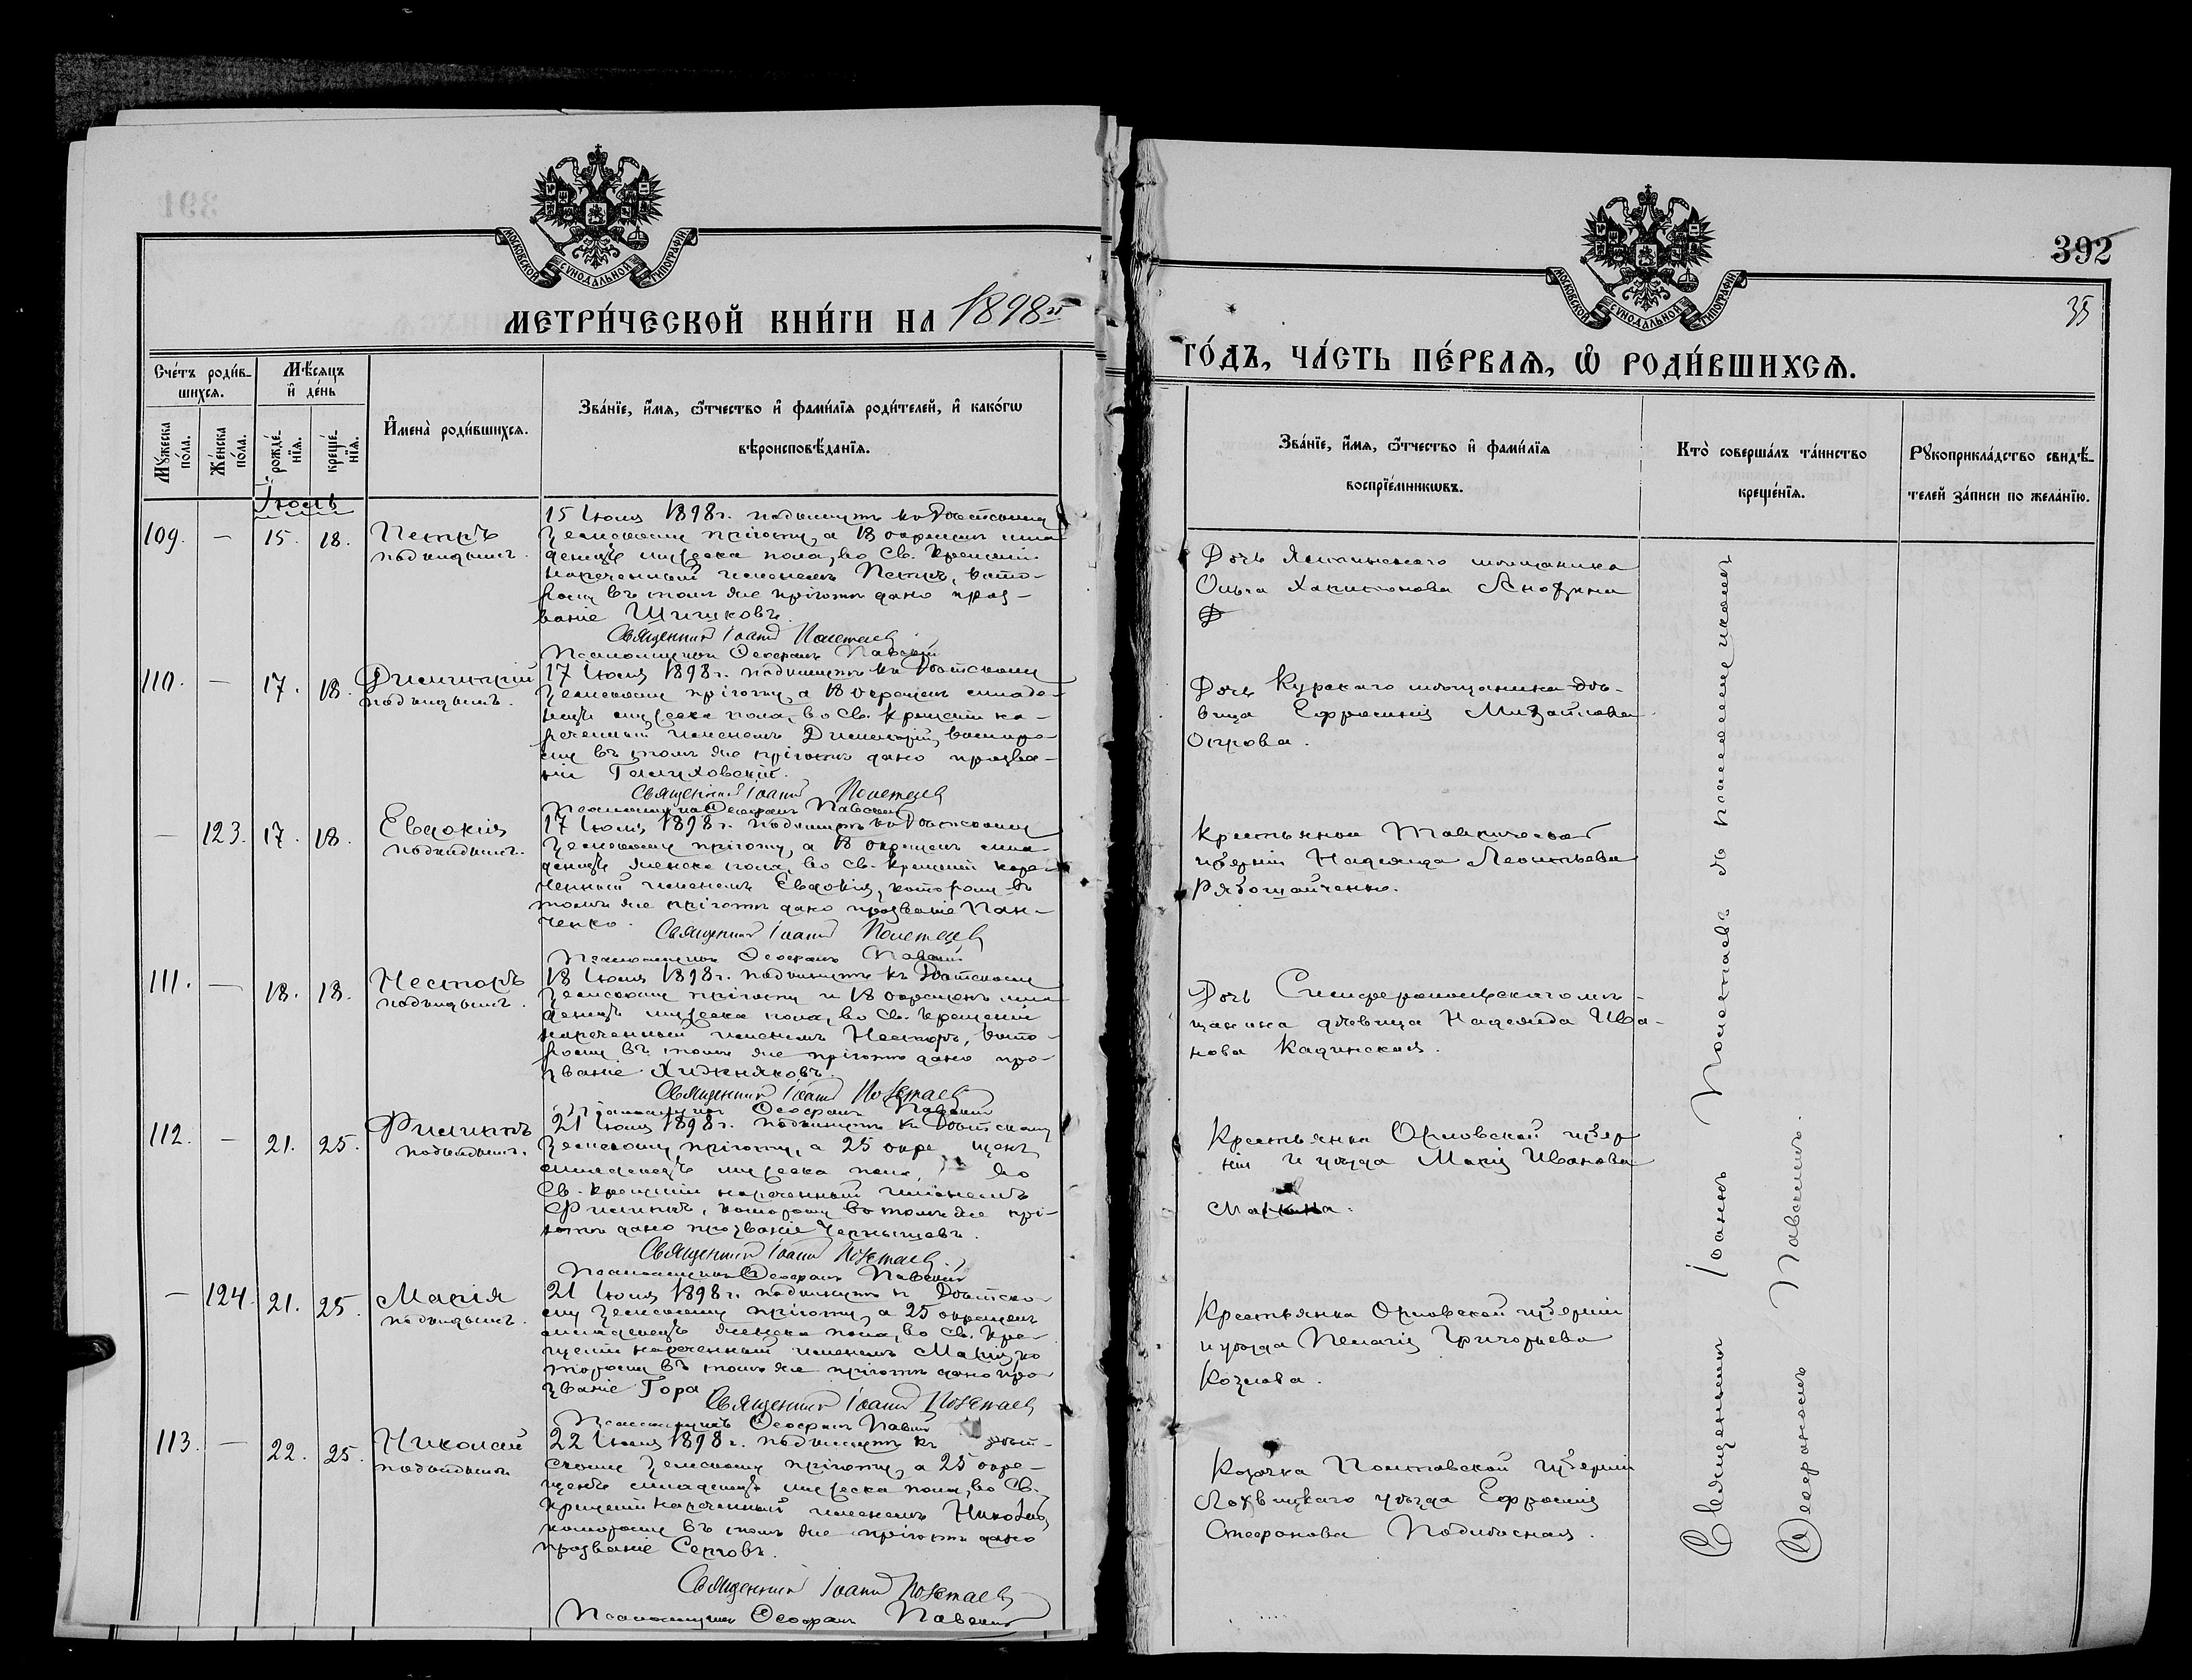 391
МОСКОВСКОЙ СУНОДАЛЬНОЙ ТИПОГРАФІИ
МЕТРИ́ЧЕСКОЙ КНИ́ГИ НА 1898й
Сче́тъ роди́в-
шихсѧ.
Мѣ́сяцъ
и҆ де́нь
Мꙋ́жеска
по́ла.
Же́нска
по́ла.
рожде́-
нїѧ.
креще́-
нїѧ.
И҆мена̀ роди́вшихсѧ.
Зва́нїе, и҆́мѧ, ѻ҆́тчество и҆ фами́лїѧ роди́телей, и҆ како́гѡ
вѣроисповѣ́данїѧ.
Іюль
109. — 15. 18. Петръ
подкидышъ.
15 Іюля 1898 г. подкинутъ къ Дѣтскому
Земскому пріюту, а 18 окрещенъ мла
денецъ мужеска пола, во Св. Крещеніи
нареченный именемъ Петръ, кото-
рому въ томъ же пріютѣ дано проз-
ваніе Шишковъ.
Священник Іоанн Полетаев
Псаломщикъ Феофанъ Павскій
110. — 17. 18. Димитрій
подкидышъ.
17 Іюля 1898 г. подкинутъ къ Дѣтскому
Земскому пріюту, а 18 окрещенъ младе-
нецъ мужеска пола, во Св. Крещеніи на-
реченный именемъ Димитрій, которо-
му въ томъ же пріютѣ дано прозва-
ніе
Священник Іоанн Полетаев
Псаломщикъ Феофанъ Павскій
— 123. 17. 18. Евдокія
подкидышъ.
17 Іюля 1898 г. подкинутъ къ Дѣтскому
Земскому пріюту, а 18 окрещенъ мла-
денецъ женска пола, во Св. Крещеніи наре-
ченный именемъ Евдокія, которому въ
томъ же пріютѣ дано прозваніе Пан-
ченко.
Священник Іоанн Полетаев
Псаломщикъ Феофанъ Павскій
111. — 18. 18. Несторъ
подкидышъ.
18 Іюля 1898 г. подкинутъ къ Дѣтскому
Земскому пріюту и 18 окрещенъ мла
денецъ мужеска пола, во Св. Крещеніи
нареченный именемъ Несторъ, кото-
рому въ томъ же пріютѣ дано про-
званіе Хижняковъ.
Священник Іоанн Полетаев
Псаломщикъ Феофанъ Павскій
112. — 21. 25. Филиппъ
подкидышъ.
21 Іюля 1898 г. подкинутъ къ Дѣтскому
Земскому пріюту, а 25 окре щенъ
младенецъ мужеска пола, во
Св. Крещеніи нареченный именемъ
Филиппъ, которому въ томъ же прі-
ютѣ дано прозваніе Чернышевъ.
Священник Іоанн Полетаев
Псаломщикъ Феофанъ Павскій
— 124. 21. 25. Марія
подкидышъ.
21 Іюля 1898 г. подкинутъ къ Дѣтско-
му Земскому пріюту, а 25 окрещенъ
младенецъ женска пола, во Св. Кре-
щеніи нареченный именемъ Марія, ко
торому въ томъ же пріютѣ дано про-
званіе Гора
Священник Іоанн Полетаев
Псаломщикъ Феофанъ Павскій
113. — 22. 25. Николай
подкидышъ
22 Іюля 1898 г. подкинутъ къ Дѣт-
скому Земскому пріюту, а 25 окре-
щенъ младенецъ мужеска пола, во Св.
Крещеніи нареченный именемъ Николай,
которому въ томъ же пріютѣ дано
прозваніе Серговъ.
Священник Іоанн Полетаев
Псаломщикъ Феофанъ Павскій
392
35
МОСКОВСКОЙ СУНОДАЛЬНОЙ ТИПОГРАФІИ
ГО́ДЪ, ЧА́СТЬ ПЕ́РВАѦ, Ѽ РОДИ́ВШИХСѦ.
Зва́нїе, и҆́мѧ, ѻ҆́тчество и҆ фами́лїѧ
воспрїе́мникѡвъ.
Кто̀ соверша́лъ та́инство
креще́нїѧ.
Рꙋкоприкла́дство свидѣ́-
телей за́писи по жела́нїю.
Дочь Ялтинскаго мѣщанина
Ольга Харитонова Анофрина
Дочь Курскаго мѣщанина дѣ-
вица Ефросинія Михайлова
Крестьянка Таврической
губерніи Надежда Леонтьева
Рябошайченко.
Дочь Симферопольскаго мѣ-
щанина дѣвица Надежда Ива-
нова Кадинская.
Крестьянка Орловской губер
ніи и уѣзда Марія Иванова
Крестьянка Орловской губерніи
и уѣзда Пелагія Григорьева
Козлова.
Козачка Полтавской губерніи
Лохвицкаго уѣзда Ефросинія
Стефанова
Священникъ Іоаннъ Полетаевъ съ псаломщикомъ
Феофаномъ Павскимъ.